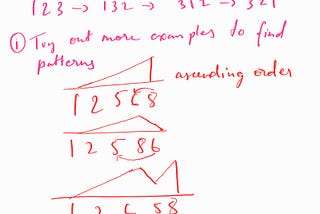 123 → 132 → 312 → 321
① Try out more examples to find
patterns
ascending order
1 2 5 6 8
1 2 5 8 6
1 2 6 5 8